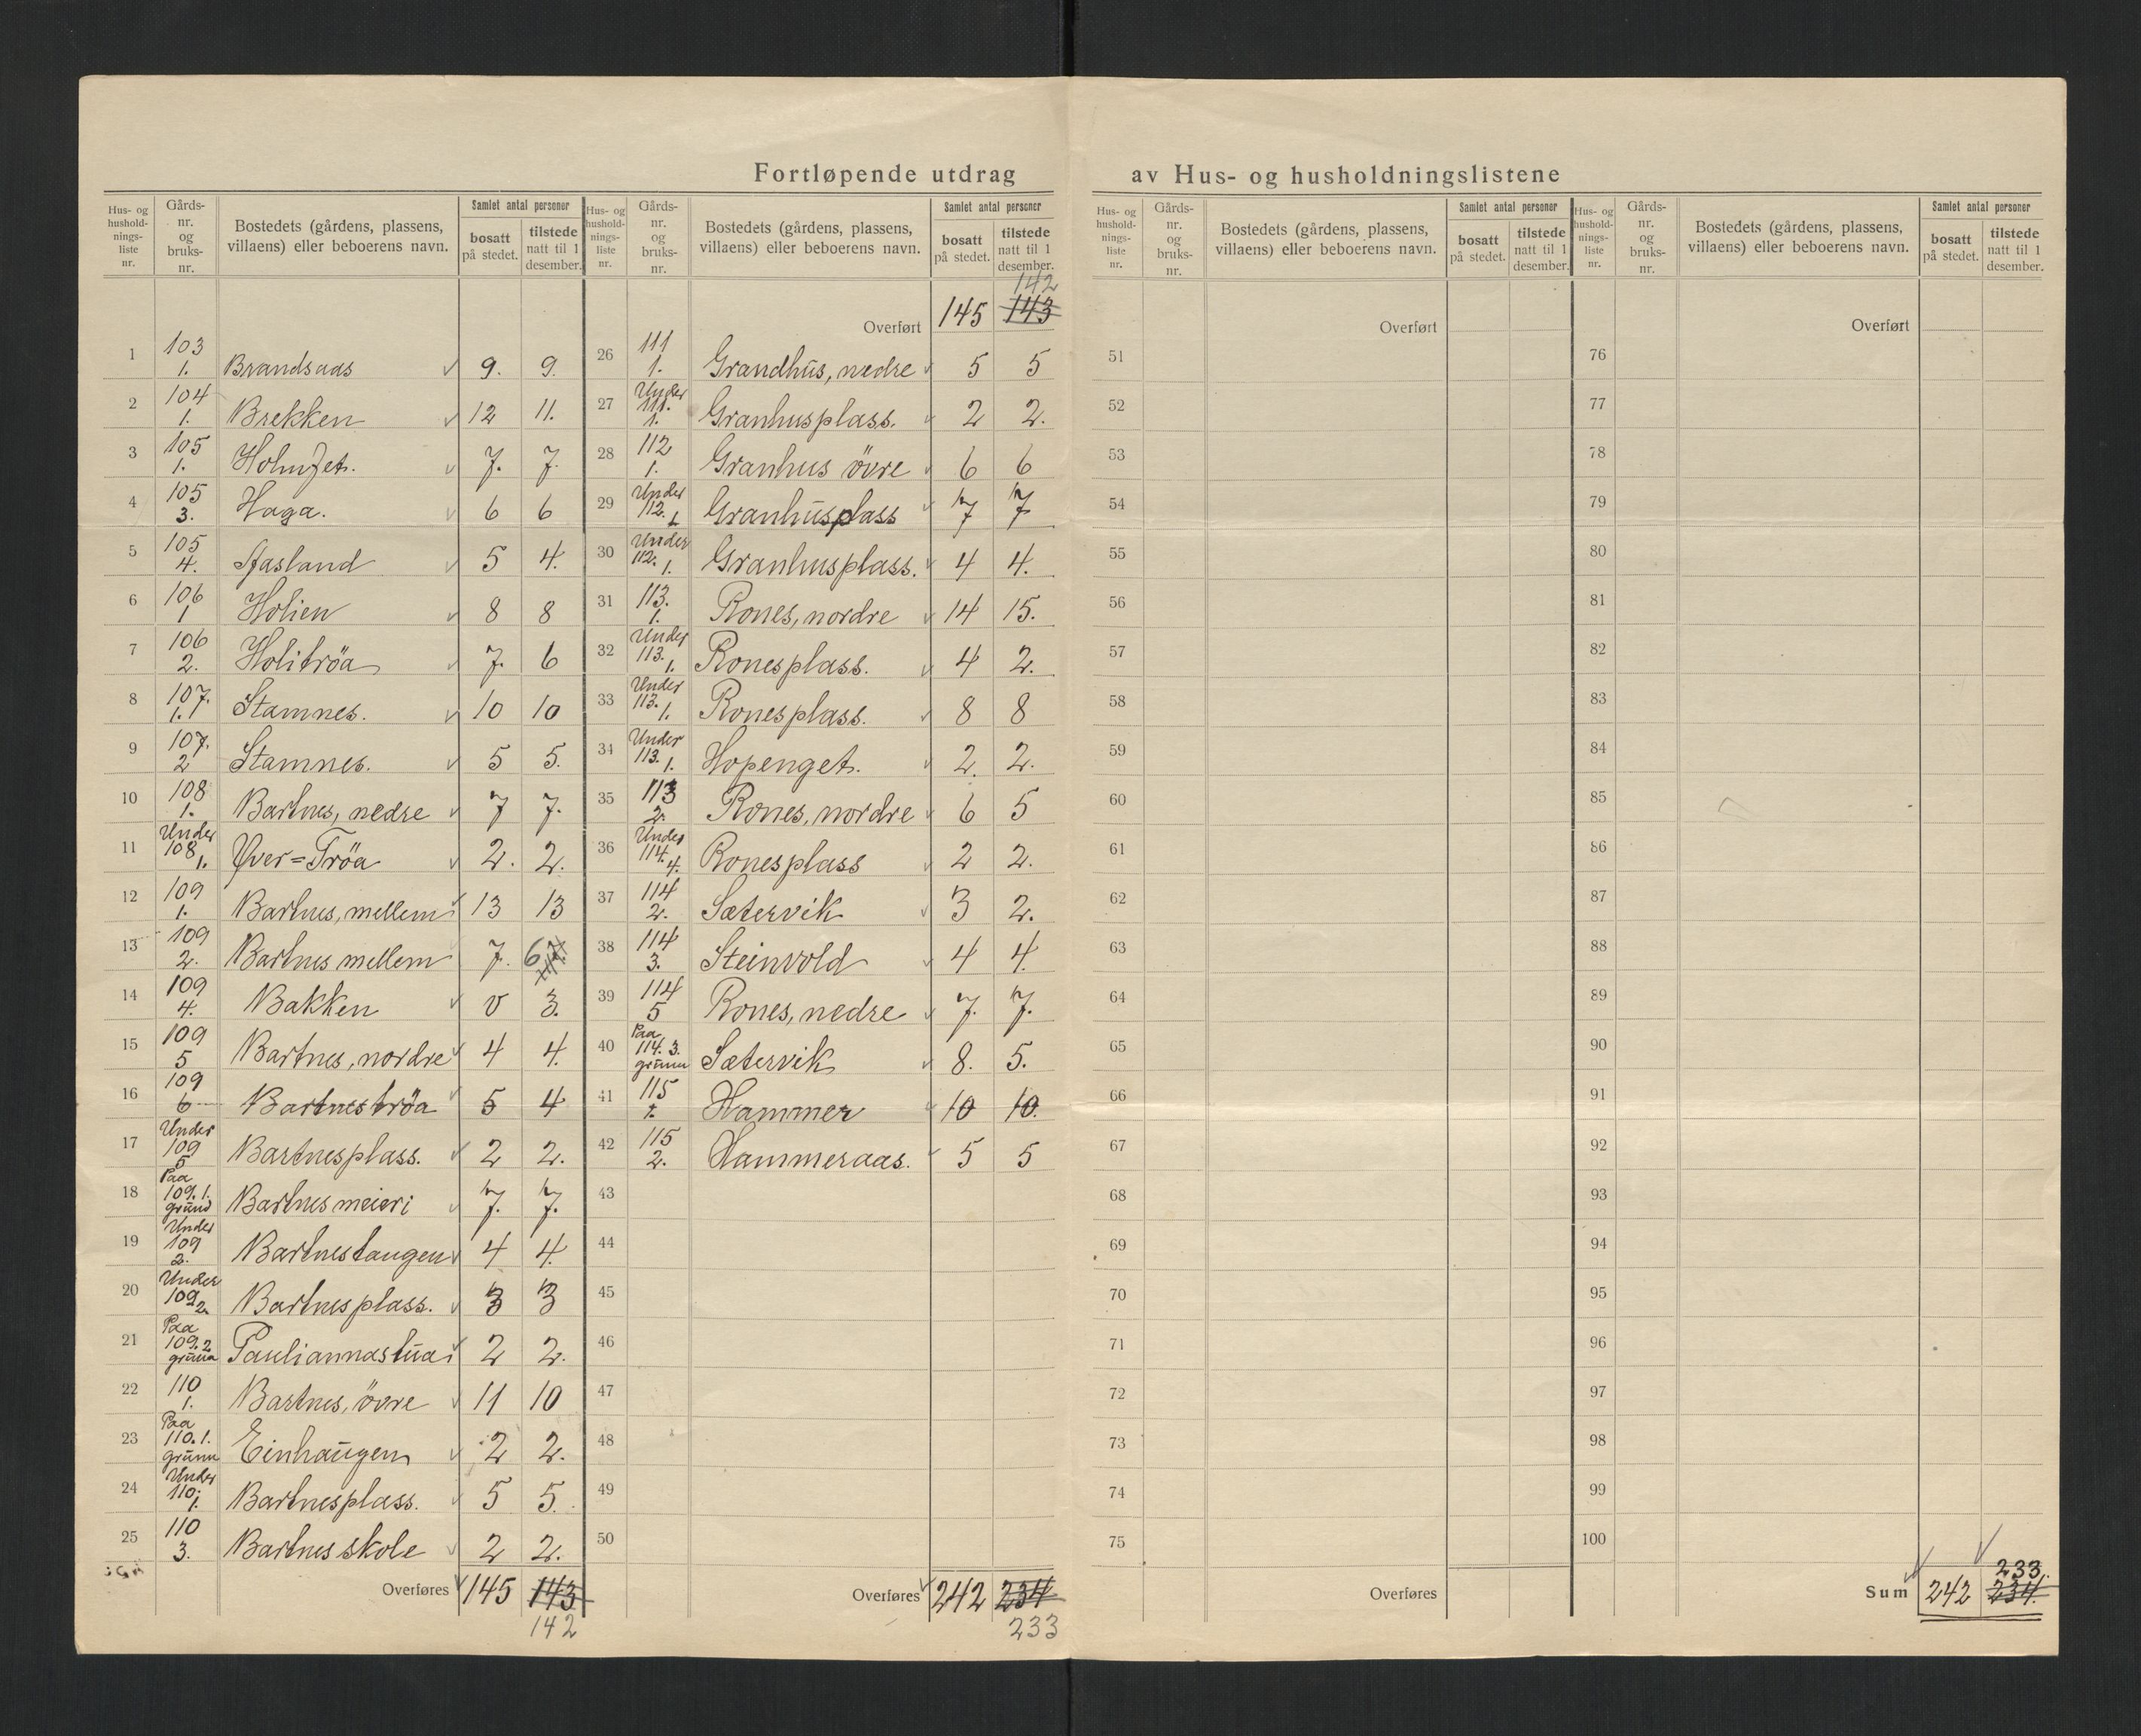 Fortløpende utdrag av Hus- og husholdningslistene
Hus- og hushold-nings-liste nr. | Gårds-nr. og bruks-nr. | Bostedets (gårdens, plassens, villaens) eller beboerens navn. | Samlet antal personer | bosatt på stedet. | tilstede natt til 1 desember.
1 103 1. Brandsaas 9. 9.
2 104 1. Brekken 12 11.
3 105 1. 7. 7.
4 105 3. Haga. 6 6
5 105 4. Aasland 5 4.
6 106 1 Holien 8 8
7 106 2. Holitröa 7. 6
8 107. 1. Stamnes. 10 10
9 107. 2 Stamnes. 5 5.
10 108 1. Bartnes, nedre 7 7.
11 Under 108 1. Över=Tröa 2. 2.
12 109 1. Bartnes, mellem 13 13
13 109 2. Bartnes mellem 7. 6
14 109 4. Bakken 0 3.
15 109 5 Bartnes, nordre 4 4.
16 109 6 Bartneströa 5 4
17 Under 109 5 Bartnesplass. 2 2.
18 Paa 109. 1. grund Bartnes meieri 7. 7.
19 Under 109 2. Bartnestangen 4 4.
20 Under 109 2. Bartnesplass. 3 3
21 Paa 109. 2 grunn Pauliannastua 2 2.
22 110 1. Bartnes, övre 11 10
23 Paa 110. 1. grunn Einhaugen 2 2.
24 Under 110. 1. Bartnesplass. 5 5.
25 110 3. Bartnes skole 2 2.
Overføres 145 143
142
Hus- og hushold-nings-liste nr. | Gårds-nr. og bruks-nr. | Bostedets (gårdens, plassens, villaens) eller beboerens navn. | Samlet antal personer | bosatt på stedet. | tilstede natt til 1 desember.
142
Overført 145 143
26 111 1. Grandhus, nedre 5 5
27 Under 111. 1. Granhusplass. 2 2.
28 112 1. Granhus övre 6 6
29 Under 112. 1 Granhusplass 7 7
30 Under 112. 1. Granhusplass. 4 4.
31 113. 1. Rones, nordre 14 15.
32 Under 113. 1. Ronesplass. 4 2.
33 Under 113. 1. Ronesplass. 8 8
34 Under 113. 1. Hopenget. 2. 2.
35 113 2. Rones, nordre 6 5
36 Under 114. 4. Ronesplass 2 2.
37 114 2. Sætervik 3 2.
38 114 3. Steinvold 4 4.
39 114 5 Rones, nedre 7. 7.
40 Paa 114. 3. grunn Sætervik 8. 5.
41 115 1. Hammer 10 10.
42 115 2. Hammeraas. 5 5
43
44
45
46
47
48
49
50
Overføres 242 234
233
Hus- og hushold-nings-liste nr. | Gårds-nr. og bruks-nr. | Bostedets (gårdens, plassens, villaens) eller beboerens navn. | Samlet antal personer | bosatt på stedet. | tilstede natt til 1 desember.
Overført
51
52
53
54
55
56
57
58
59
60
61
62
63
64
65
66
67
68
69
70
71
72
73
74
75
Overføres
Hus- og hushold-nings-liste nr. | Gårds-nr. og bruks-nr. | Bostedets (gårdens, plassens, villaens) eller beboerens navn. | Samlet antal personer | bosatt på stedet. | tilstede natt til 1 desember.
Overført
76
77
78
79
80
81
82
83
84
85
86
87
88
89
90
91
92
93
94
95
96
97
98
99
100
233.
Sum 242 234.